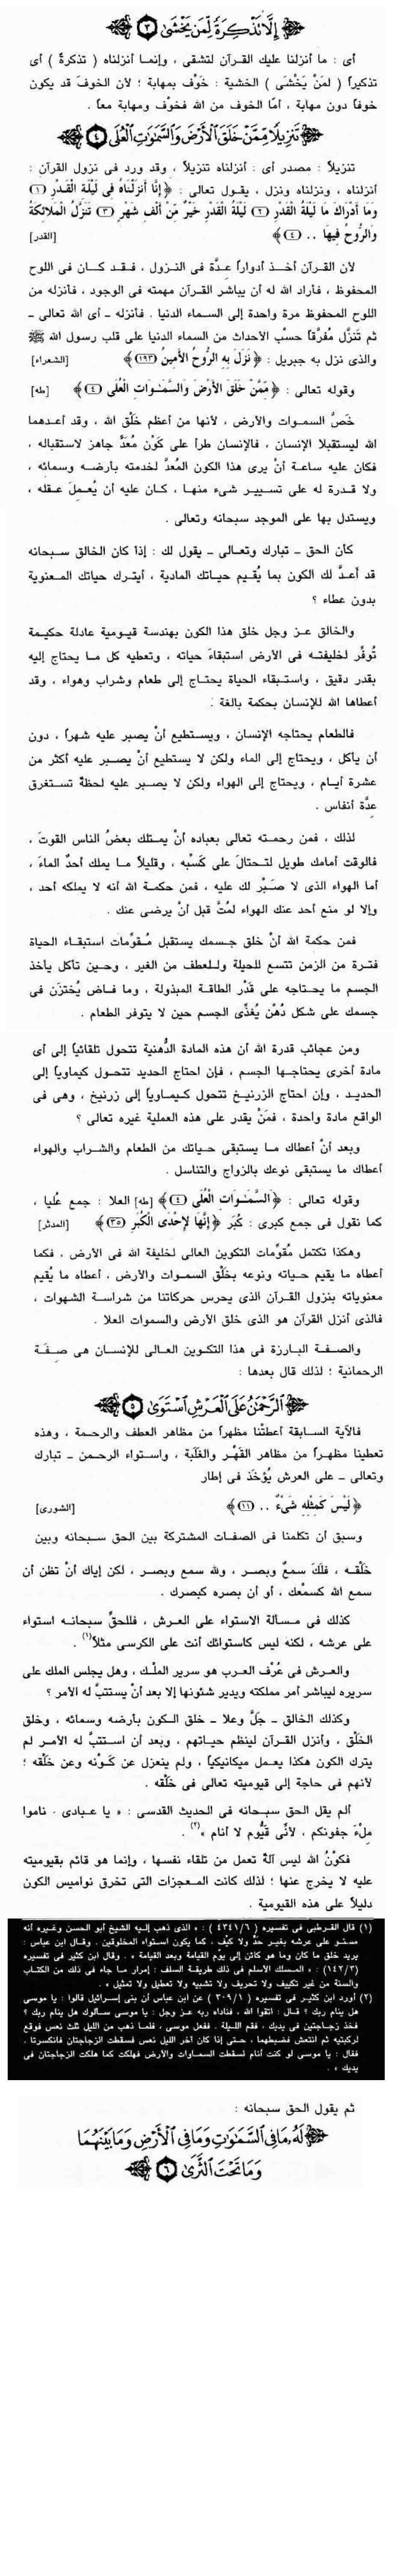 إِلَّا تَذْكِرَةً لِّمَن يَخْشَىٰ ٣
أى : ما أنزلنا عليك القرآن لتشقى ، وإنما أنزلناه ( تذكرةً ) أى
تذكيراً ( لمَنْ يَخْشَى ) الخشية : خَوْف بمهابة ؛ لأن الخوفَ قد يكون
خوفاً دون مهابة ، أمَّا الخوف من الله فخوْف ومهابة معاً .
تَنزِيلًا مِّمَّنْ خَلَقَ الْأَرْضَ وَالسَّمَاوَاتِ الْعُلَى ٤
تنزيلاً : مصدر أى : أنزلناه تنزيلاً ، وقد ورد فى نزول القرآن :
أنزلناه ، ونزلناه ونزل ، يقول تعالى : ﴿ إِنَّا أَنزَلْنَاهُ فِى لَيْلَةِ الْقَدْرِ (١)
وَمَا أَدْرَاكَ مَا لَيْلَةُ الْقَدْرِ (٢) لَيْلَةُ الْقَدْرِ خَيْرٌ مِّنْ أَلْفِ شَهْرٍ (٣) تَنَزَّلُ الْمَلَائِكَةُ
وَالرُّوحُ فِيهَا .. (٤) ﴾ [القدر]
لأن القرآن أخذ أدواراً عِدَّة فى النزول ، فقد كان فى اللوح
المحفوظ ، فأراد الله له أن يباشر القرآن مهمته فى الوجود ، فأنزله من
اللوح المحفوظ مرة واحدة إلى السماء الدنيا . فأنزله ـ أى الله تعالى ـ
ثم تَنزَّل مُفرَّقاً حسْب الأحداث من السماء الدنيا على قلب رسول الله ﷺ
والذى نزل به جبريل : ﴿ نَزَلَ بِهِ الرُّوحُ الأَمِينُ (١٩٣) ﴾ [الشعراء]
وقوله تعالى : ﴿ مِّمَّنْ خَلَقَ الأَرْضَ وَالسَّمَوَاتِ الْعُلَى (٤) ﴾ [طه]
خَصَّ السموات والأرض ، لأنها من أعظم خَلْق الله ، وقد أعدهما
الله ليستقبلا الإنسان ، فالإنسان طرأ على كَوْن مُعَدٍّ جاهز لاستقباله ،
فكان عليه ساعة أنْ يرى هذا الكون المُعدَّ لخدمته بأرضه وسمائه ،
ولا قدرة له على تسيير شىء منها ، كان عليه أن يُعمِلَ عقله ،
ويستدل بها على الموجد سبحانه وتعالى .
كأن الحق ـ تبارك وتعالى ـ يقول لك : إذا كان الخالق سبحانه
قد أعدَّ لك الكون بما يُقيم حياتك المادية ، أيترك حياتك المعنوية
بدون عطاء ؟
والخالق عز وجل خلق هذا الكون بهندسة قيومية عادلة حكيمة
تُوفِّر لخليفته فى الأرض استبقاءَ حياته ، وتعطيه كل ما يحتاج إليه
بقدر دقيق ، واستبقاء الحياة يحتاج إلى طعام وشراب وهواء ، وقد
أعطاها الله للإنسان بحكمة بالغة .
فالطعام يحتاجه الإنسان ، ويستطيع أنْ يصبر عليه شهراً ، دون
أن يأكل ، ويحتاج إلى الماء ولكن لا يستطيع أنْ يصبر عليه أكثر من
عشرة أيام ، ويحتاج إلى الهواء ولكن لا يصبر عليه لحظةً تستغرق
عِدَّة أنفاس .
لذلك ، فمن رحمته تعالى بعباده أنْ يمتلك بعضُ الناس القوتَ ،
فالوقت أمامك طويل لتحتالَ على كَسْبه ، وقليلاً ما يملك أحدٌ الماءَ ،
أما الهواء الذى لا صَبْر لك عليه ، فمن حكمة الله أنه لا يملكه أحد ،
وإلا لو منع أحد عنك الهواء لمُتَّ قبل أنْ يرضى عنك .
فمن حكمة الله أنْ خلق جسمك يستقبل مُقوِّمات استبقاء الحياة
فترة من الزمن تتسع للحيلة وللعطف من الغير ، وحين تأكل يأخذ
الجسم ما يحتاجه على قَدْر الطاقة المبذولة ، وما فاض يُختزَن فى
جسمك على شكل دُهْن يُغذِّى الجسم حين لا يتوفر الطعام .
ومن عجائب قدرة الله أن هذه المادة الدُّهنية تتحول تلقائياً إلى أى
مادة أخرى يحتاجها الجسم ، فإن احتاج الحديد تتحول كيماوياً إلى
الحديد ، وإن احتاج الزرنيخ تتحول كيماوياً إلى زرنيخ ، وهى فى
الواقع مادة واحدة ، فمَنْ يقدر على هذه العملية غيره تعالى ؟
وبعد أنْ أعطاك ما يستبقى حياتك من الطعام والشراب والهواء
أعطاك ما يستبقى نوعك بالزواج والتناسل .
وقوله تعالى : ﴿ السَّمَوَاتِ الْعُلَى (٤) ﴾ [طه] العلا : جمع عُليا ،
كما نقول فى جمع كبرى : كُبَر ﴿ إِنَّهَا لإِحْدَى الْكُبَرِ (٣٥) ﴾ [المدثر]
وهكذا تكتمل مُقوِّمات التكوين العالى لخليفة الله فى الأرض ، فكما
أعطاه ما يقيم حياته ونوعه بخَلْق السموات والأرض ، أعطاه ما يُقيم
معنوياته بنزول القرآن الذى يحرس حركاتنا من شراسة الشهوات ،
فالذى أنزل القرآن هو الذى خلق الأرض والسموات العلا .
والصفة البارزة فى هذا التكوين العالى للإنسان هى صِفَة
الرحمانية ؛ لذلك قال بعدها :
الرَّحْمَٰنُ عَلَى الْعَرْشِ اسْتَوَىٰ ٥
فالآية السابقة أعطتْنا مظهراً من مظاهر العطف والرحمة ، وهذه
تعطينا مظهراً من مظاهر القَهْر والغَلَبة ، واستواء الرحمن ـ تبارك
وتعالى ـ على العرش يُؤخَذ فى إطار
﴿ لَيْسَ كَمِثْلِهِ شَىْءٌ .. (١١) ﴾ [الشورى]
وسبق أن تكلمنا فى الصفات المشتركة بين الحق سبحانه وبين
خَلْقه ، فلَكَ سمعٌ وبصر ، ولله سمع وبصر ، لكن إياك أنْ تظن أن
سمع الله كسمْعك ، أو أن بصره كبصرك .
كذلك فى مسألة الاستواء على العرش ، فللحقِّ سبحانه استواء
على عرشه ، لكنه ليس كاستوائك أنت على الكرسى مثلاً(١) .
والعرش فى عُرْف العرب هو سرير المُلْك ، وهل يجلس الملك على
سريره ليباشر أمر مملكته ويدير شئونها إلا بعد أنْ يستتبَّ له الأمر ؟
وكذلك الخالق ـ جَلَّ وعلا ـ خلق الكون بأرضه وسمائه ، وخلق
الخَلْق ، وأنزل القرآن لينظم حياتهم ، وبعد أن استتبَّ له الأمر لم
يترك الكون هكذا يعمل ميكانيكياً ، ولم ينعزل عن كَوْنه وعن خَلْقه ؛
لأنهم فى حاجة إلى قيوميته تعالى فى خَلْقه .
ألم يقل الحق سبحانه فى الحديث القدسى : « يا عبادى . ناموا
مِلْءَ جفونكم ، لأنِّى قَيُّوم لا أنام »(٢) .
فكَوْنُ الله ليس آلةً تعمل من تلقاء نفسها ، وإنما هو قائم بقيوميته
عليه لا يخرج عنها ؛ لذلك كانت المعجزات التى تخرق نواميس الكون
دليلاً على هذه القيومية .
(١) قال القرطبى فى تفسيره ( ٤٣٤١/٦ ) : « الذى ذهب إليه الشيخ أبو الحسن وغيره أنه
مستو على عرشه بغير حَدٍّ ولا كيْف ، كما يكون استواء المخلوقين . وقال ابن عباس :
يريد خلق ما كان وما هو كائن إلى يوم القيامة وبعد القيامة » . وقال ابن كثير فى تفسيره
(١٤٢/٣) : « المسلك الأسلم فى ذلك طريقة السلف : إمرار ما جاء فى ذلك من الكتاب
والسنة من غير تكييف ولا تحريف ولا تشبيه ولا تعطيل ولا تمثيل » .
(٢) أورد ابن كثير فى تفسيره ( ٣٠٩/١ ) عن ابن عباس أن بنى إسرائيل قالوا : يا موسى
هل ينام ربك ؟ قال : اتقوا الله ، فناداه ربه عز وجل : يا موسى سألوك هل ينام ربك ؟
فخذ زجاجتين فى يديك ، فقم الليلة . ففعل موسى ، فلما ذهب من الليل ثلث نعس فوقع
لركبتيه ثم انتعش فضبطهما ، حتى إذا كان آخر الليل نعس فسقطت الزجاجتان فانكسرتا .
فقال : يا موسى لو كنت أنام لسقطت السماوات والأرض فهلكت كما هلكت الزجاجتان فى
يديك » .
ثم يقول الحق سبحانه :
لَهُ مَا فِي السَّمَاوَاتِ وَمَا فِي الْأَرْضِ وَمَا بَيْنَهُمَا
وَمَا تَحْتَ الثَّرَىٰ ٦